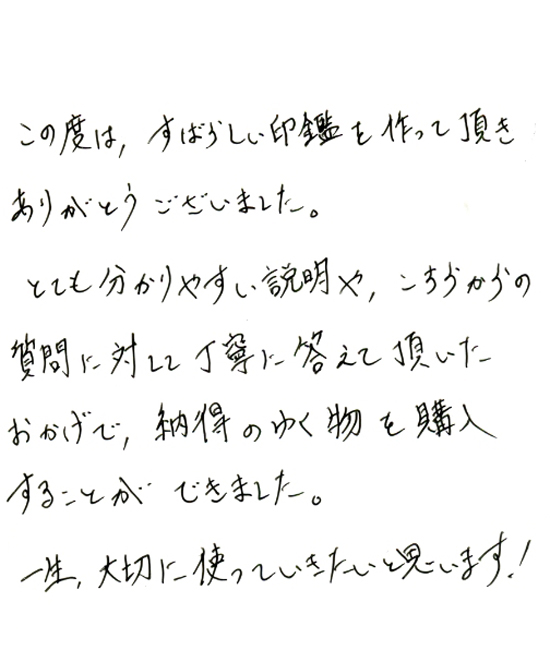 この度は, すばらしい印鑑を作って頂き
ありがとうございました。
とても分かりやすい説明や, こちらからの
質問に対して丁寧に答えて頂いた
おかげで, 納得のゆく物を購入
することができました。
一生, 大切に使っていきたいと思います!